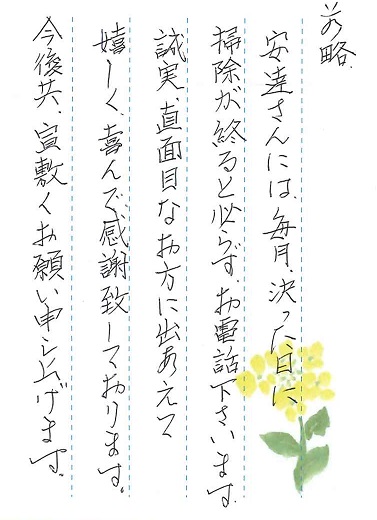 前略、
安達さんには、毎月、決った日に
掃除が終ると必らず、お電話下さいます。
誠実、真面目なお方に出あえて
嬉しく、喜んで感謝致しております。
今後共、宜敷くお願い申し上げます。